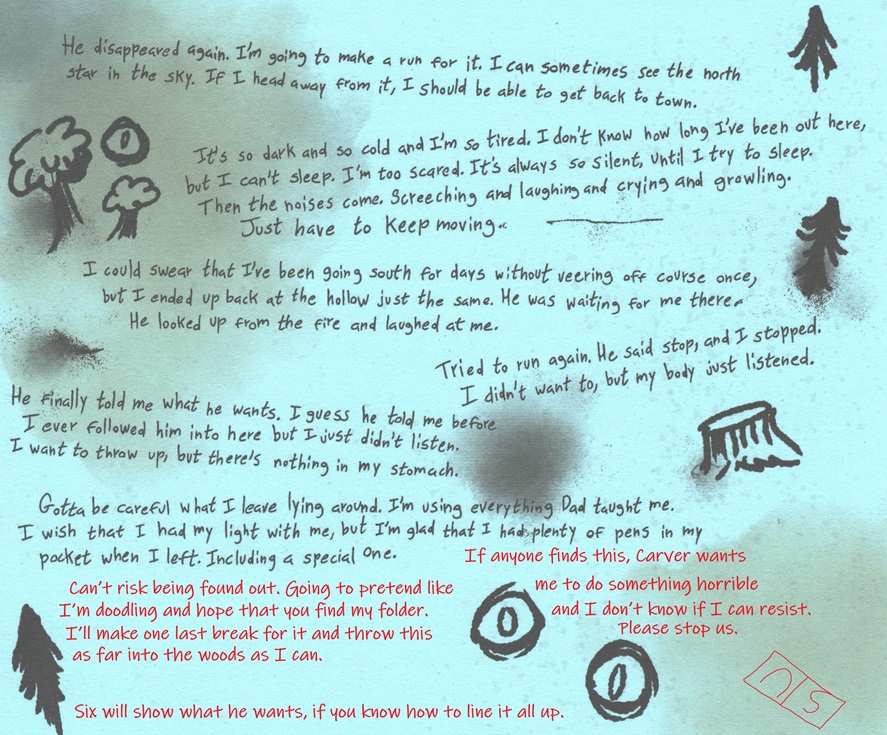 He disappeared again. I'm going to make a run for it. I can sometimes see the north
star in the sky. If I head away from it, I should be able to get back to town.
It's so dark and so cold and I'm so tired. I don't know how long I've been out here,
but I can't sleep. I'm too scared. It's always so silent, until I try to sleep.
Then the noises come. Screeching and laughing and crying and growling.
Just have to keep moving.
I could swear that I've been going south for days without veering off course once,
but I ended up back at the hollow just the same. He was waiting for me there.
He looked up from the fire and laughed at me.
Tried to run again. He said stop, and I stopped.
I didn't want to, but my body just listened.
He finally told me what he wants. I guess he told me before
I ever followed him into here but I just didn't listen.
I want to throw up, but there's nothing in my stomach.
Gotta be careful what I leave lying around. I'm using everything Dad taught me.
I wish that I had my light with me, but I'm glad that I had plenty of pens in my
pocket when I left. Including a special one.
If anyone finds this, Carver wants
me to do something horrible
and I don't know if I can resist.
Please stop us.
Can't risk being found out. Going to pretend like
I'm doodling and hope that you find my folder.
I'll make one last break for it and throw this
as far into the woods as I can.
Six will show what he wants, if you know how to line it all up.